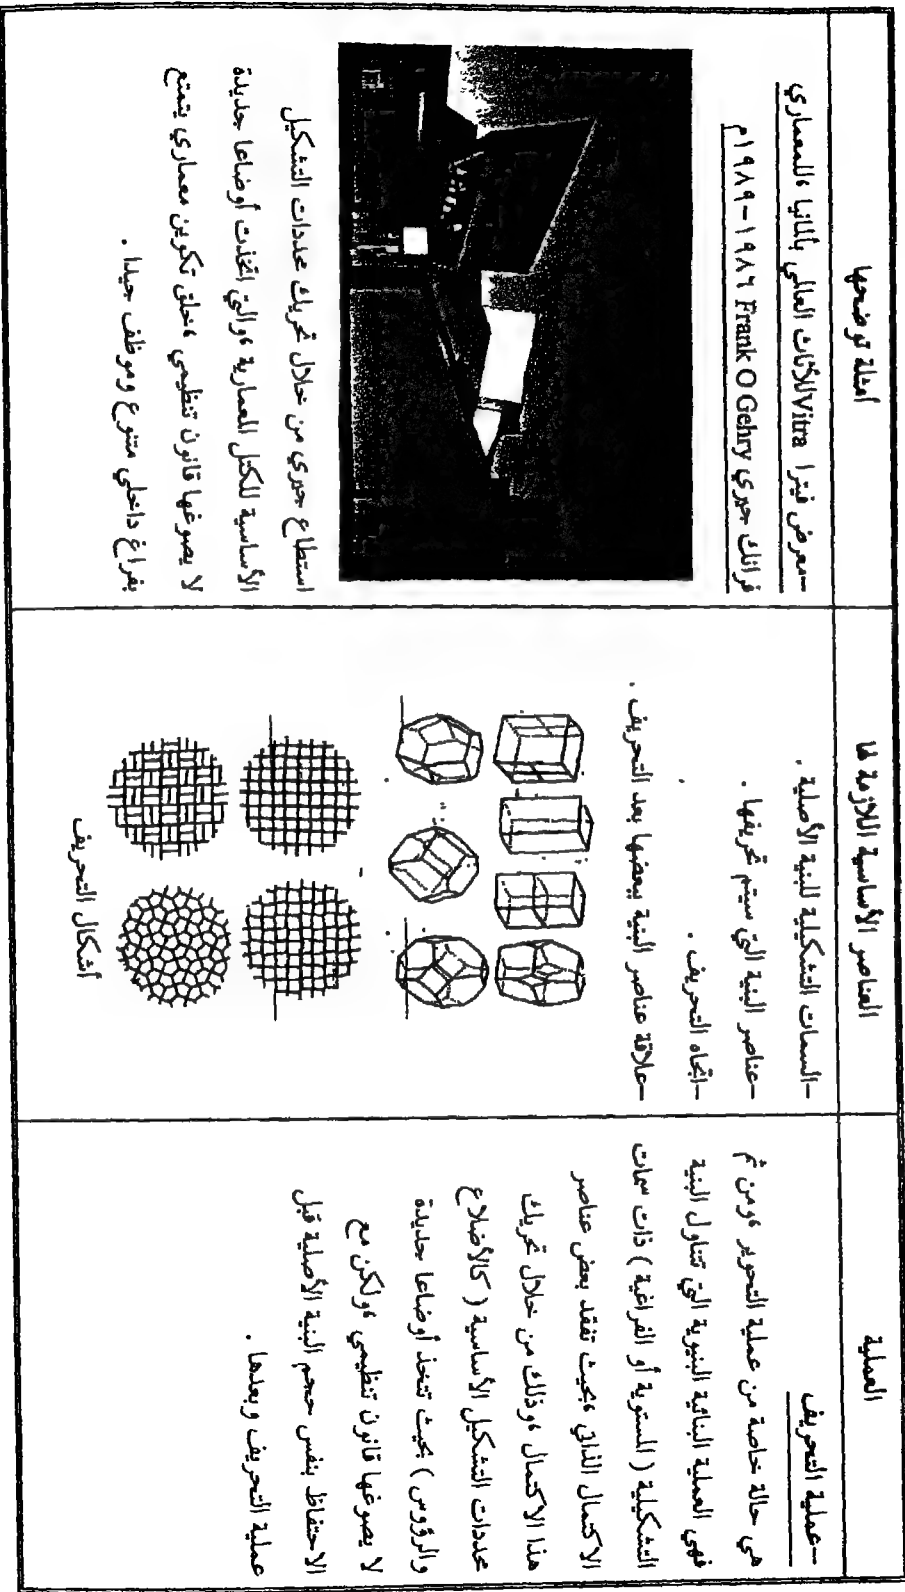 العملية
–عملية التحريف
هي حالة خاصة من عملية التحوير ،ومن ثم
فهي العملية البنائية البنيوية التي تتناول البنية
التشكيلية ( المستوية أو الفراغية ) ذات سمات
الاكتمال الذاتي ،بحيث تفقد بعض عناصر
هذا الاكتمال ،وذلك من خلال تحريك
محددات التشكيل الأساسية ( كالأضلاع
والرؤوس ) بحيث تتخذ أوضاعا جديدة
لا يصوغها قانون تنظيمي ،ولكن مع
الاحتفاظ بنفس حجم البنية الأصلية قبل
عملية التحريف وبعدها .
العناصر الأساسية اللازمة لها
–السمات التشكيلية للبنية الأصلية .
–عناصر البنية التي سيتم تحريفها .
–اتجاه التحريف .
–علاقة عناصر البنية ببعضها بعد التحريف .
أشكال التحريف
أمثلة توضحها
–معرض فيترا Vitra للأثاث العالي بألمانيا ،للمعماري
فرانك جيري Frank O Gehry ١٩٨٦-١٩٨٩م
استطاع جيري من خلال تحريك محددات التشكيل
الأساسية للكتل المعمارية ،والتي اتخذت أوضاعا جديدة
لا يصوغها قانون تنظيمي ،خلق تكوين معماري يتمتع
بفراغ داخلي متنوع وموظف جيدا .